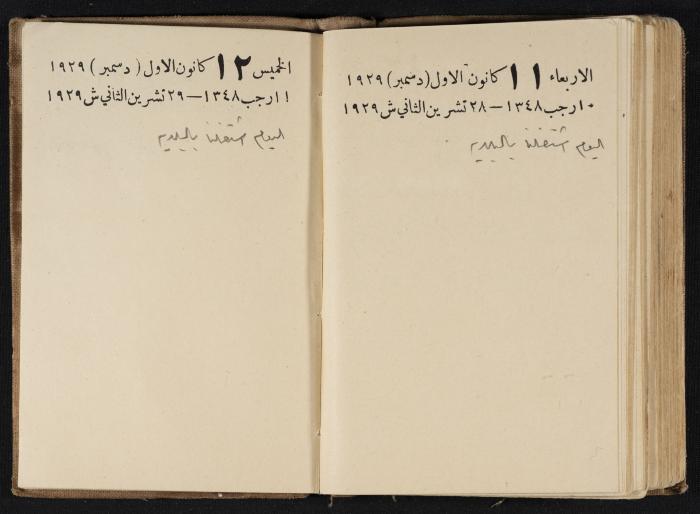 الاربعاء ١١ كانون الاول (دسمبر) ١٩٢٩
١٠ رجب ١٣٤٨ — ٢٨ تشرين الثاني ش ١٩٢٩
اليوم اشتغلنا بالبلديه
الخميس ١٢ كانون الاول (دسمبر) ١٩٢٩
١١ رجب ١٣٤٨ — ٢٩ تشرين الثاني ش ١٩٢٩
اليوم اشتغلنا بالبلديه